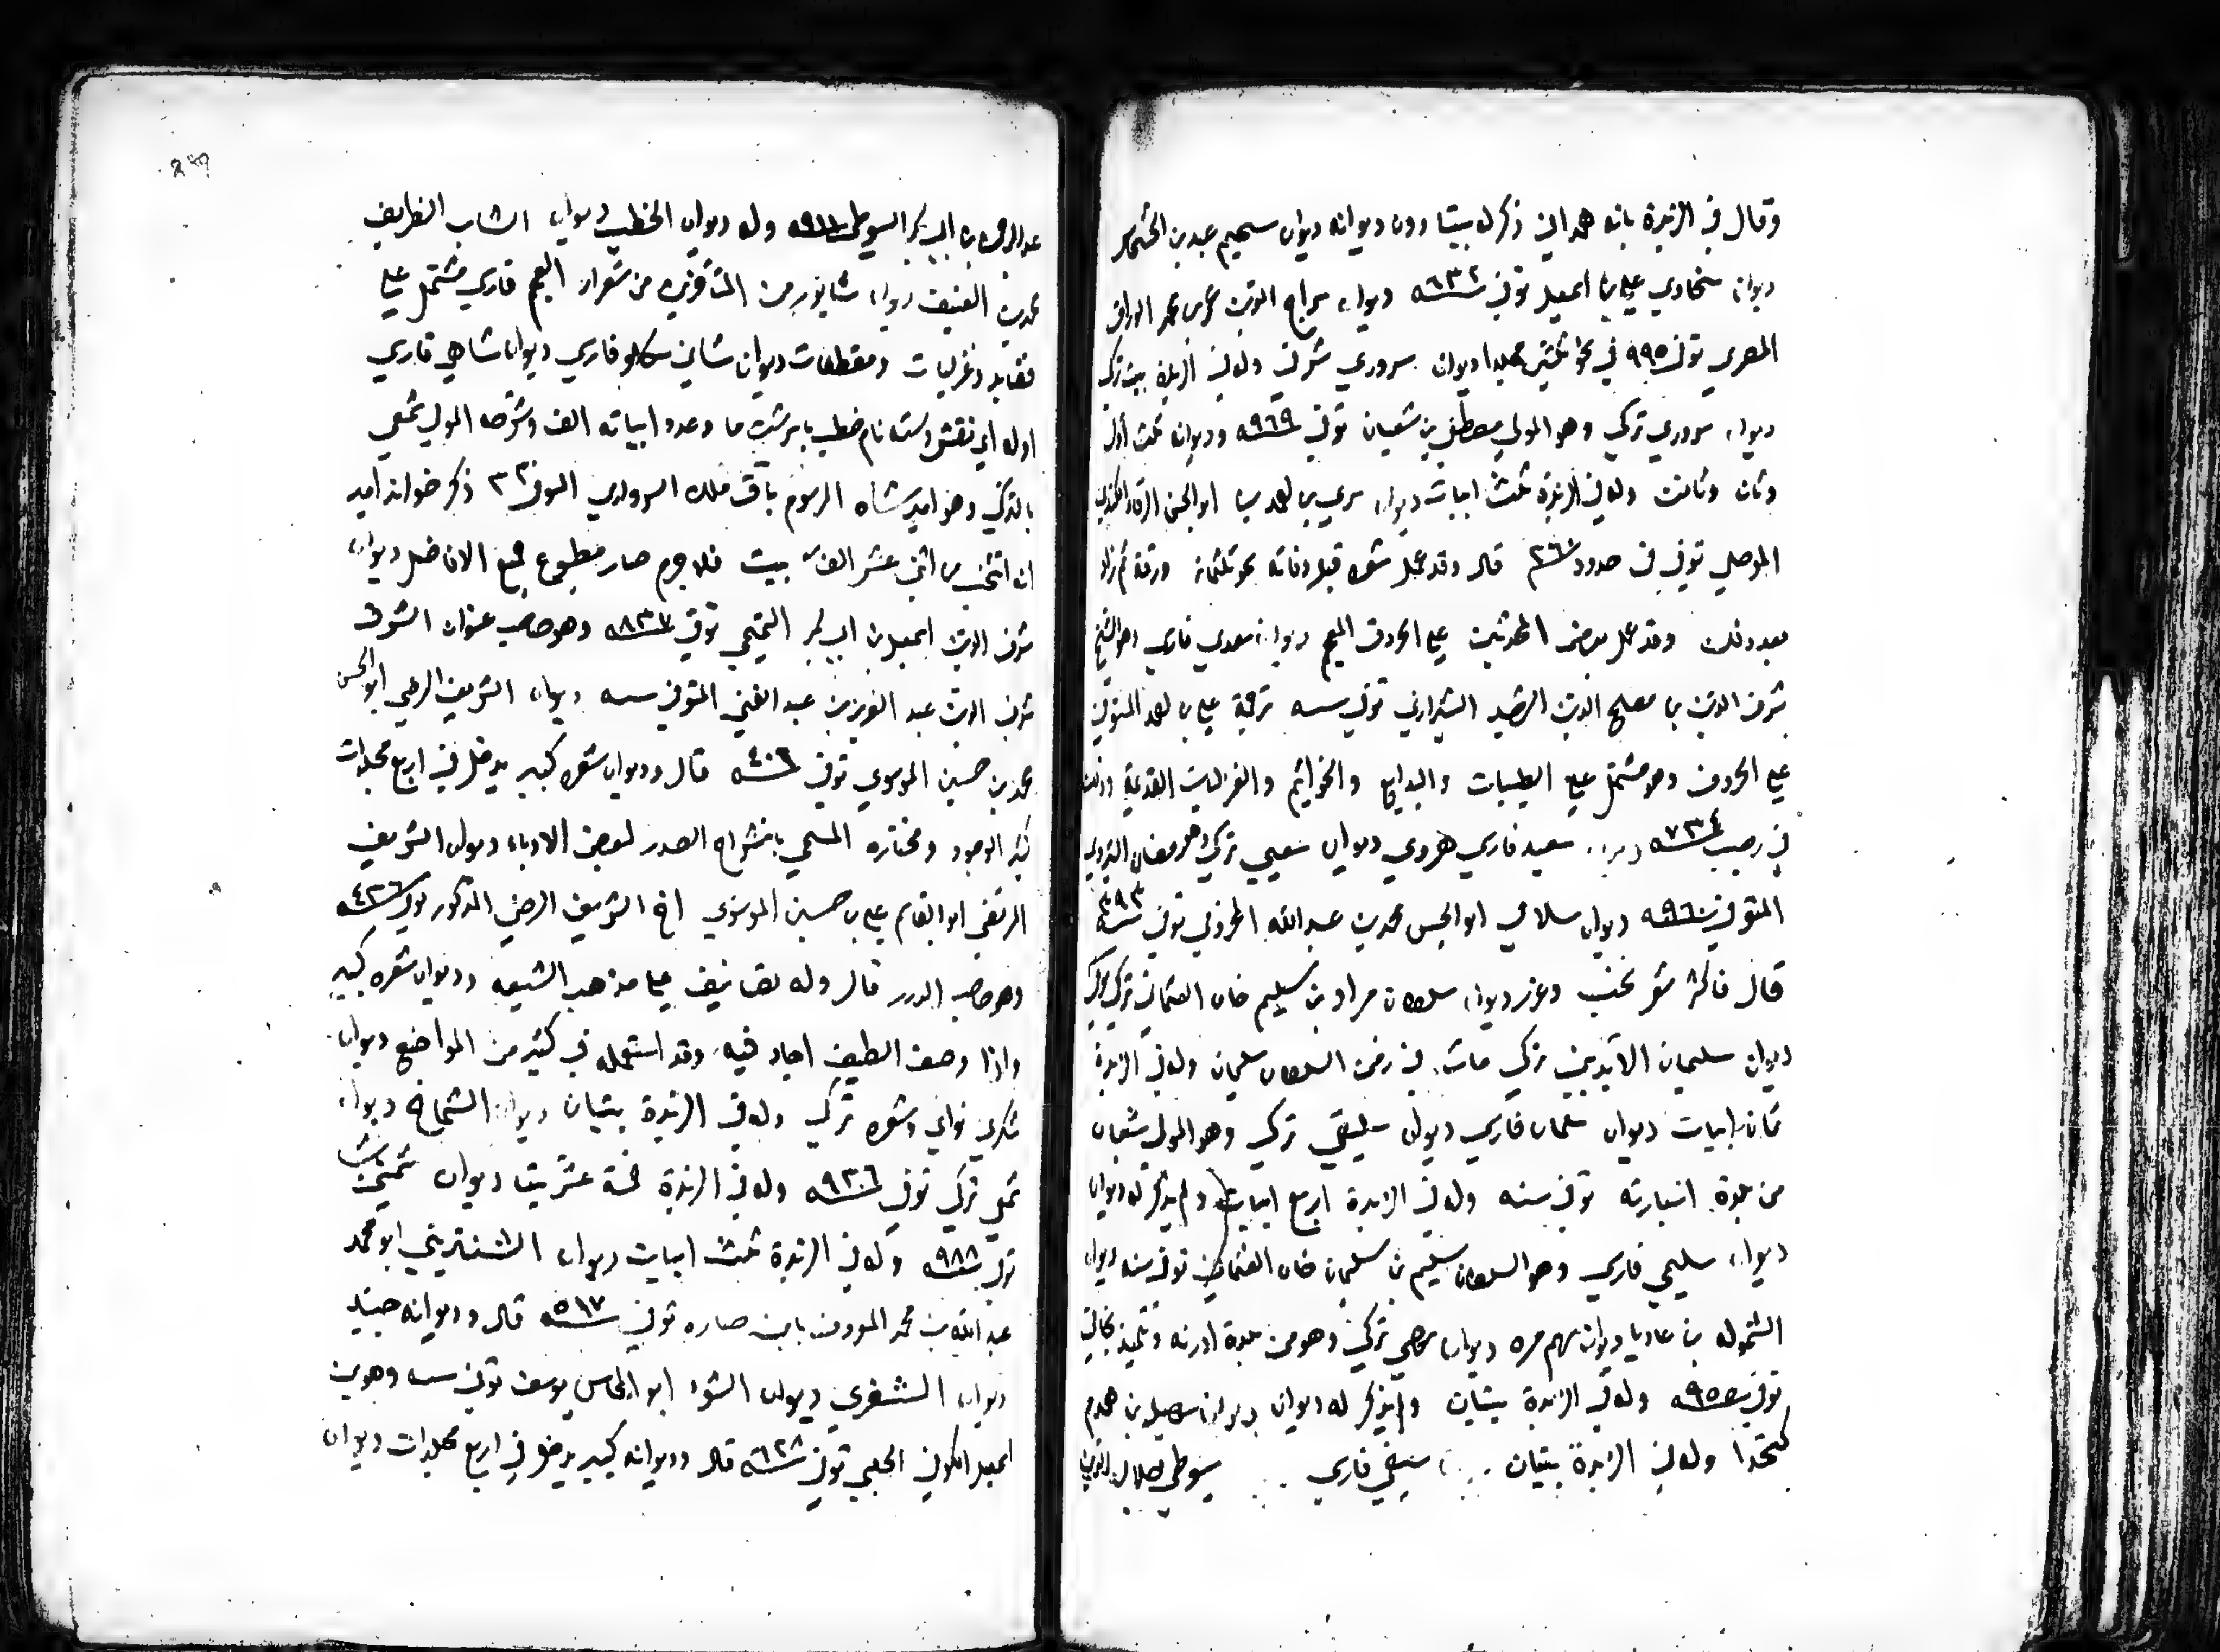 وقال في الزبدة بانه همداني ذكر له بيتا دون ديوانه ديوان سحيم عبد بن الحسحاس
ديوان سخاوي علي بن اسمعيل توفي ٦٣٢ ديوان سراج الدين عمر بن محمد الوراق
المصري توفي ٩٩٥ في نحو ثلثين مجلدا ديوان سروري شرقي وله في الزبدة بيت تركي
ديوان سروري تركي وهو المولى مصطفى بن شعبان توفي ٩٦٩ وديوانه ثلث اول
وثان وثالث وله في الزبدة ثلث ابيات ديوان سري بن احمد ابو الحسن الرفاء الكندي
الموصلي توفي في حدود ٣٦٠ قال وقد عمل شعره قبل وفاته نحو ثلثمائة ورقة ثم زاد
بعد ذلك وقد عمل بعض المحدثين على الحروف المعجم ديوان سعدي فارسي وهو الشيخ
شرف الدين بن مصلح الدين الشيرازي توفي سنه ترجمة علي بن احمد
على الحروف وهو مشتمل على الطيبات والبدايع والخواتيم والغزليات القديمة وذلك
في رجب ٧٣٤ ديوان سعيد فارسي هروي ديوان سعيي تركي وهو رمضان
المتوفي ٩٦٠ ديوان سلامي ابو الحسن محمد بن عبد الله المخزومي توفي ٣٩٣
قال فاكثر شعره نخب وغرر ديوان سلطان مراد بن سليم خان العثماني تركي
ديوان سليمان الآيديني تركي مات في زمن السلطان سليمان وله في الزبدة
ثمان ابيات ديوان سلمان فارسي ديوان سليقي تركي وهو المولى شعبان
من بلدة اسبارته توفي سنه وله في الزبدة اربع ابيات ولم يذكر له ديوان
ديوان سليمي فارسي وهو السلطان سليم بن سليمان خان العثماني توفي سنه ديوان
السموله بن عاديا ديوان سهم مره ديوان سهي تركي وهو من بلدة ادرنه وتلميذ نجاتي
توفي ٩٥٥ وله في الزبدة بيتان ولم يذكر له ديوان ديوان سهيل بن هدم
كتخدا وله في الزبدة بيتان سيفي فارسي سيوطي جلال الدين
عبد الرحمن بن ابي بكر السيوطي ٩١١ وله ديوان الخطب ديوان الشاب الظريف
محمد بن العفيف ديوان شاپور من المتأخرين من شعراء العجم فارسي مشتمل على
قصايد وغزليات ومقطعات ديوان شاني تكلو فارسي ديوان شاهي فارسي
اوله اي نقش بسته نام خطب با سرشت ما وعدد ابياته الف وشرحه المولى شمعي
بالتركي وهو امير شاه المرسوم باق ملك السبزواري المتوفي ذكر خواند امير
انه انتخب من اثني عشر الف بيت فلا جرم صار مطبوع جميع الافاضل ديوان
شرف الدين اسمعيل بن ابي بكر اليمني توفي ٨٣٧ وهو صاحب عنوان الشرف
شرف الدين عبد العزيز بن عبد الغني المتوفي سنه ديوان الشريف الرضي ابو الحسن
محمد بن حسين الموسوي توفي ٤٠٦ قال وديوان شعره كبير يدخل في اربع مجلدات
كثير الوجود ومختاره المسمى بانشراح الصدر لبعض الادباء ديوان الشريف
المرتضى ابو القاسم علي بن حسين الموسوي اخ الشريف الرضي المذكور توفي ٤٣٦
وهو صاحب الدرر قال وله تصانيف على مذهب الشيعه وديوان شعره كبير
واذا وصف الطيف اجاد فيه وقد استعمله في كثير من المواضع ديوان
شكري نوائي وشعره تركي وله في الزبدة بيتان ديوان الشماخ ديوان
شمعي تركي توفي ٩٣٦ وله في الزبدة خمسة عشر بيتا ديوان شمسي پاشا
توفي ٩٨٨ وله في الزبدة ثلث ابيات ديوان الشنتريني ابو محمد
عبد الله بن محمد المعروف بابن صاره توفي ٥١٧ قال وديوانه جيد
ديوان الشنفري ديوان الشواء ابو المحاسن يوسف توفي سنه وهو بن
اسمعيل الكوفي الحلبي توفي ٦٢٨ قال وديوانه كبير يدخل في اربع مجلدات ديوان